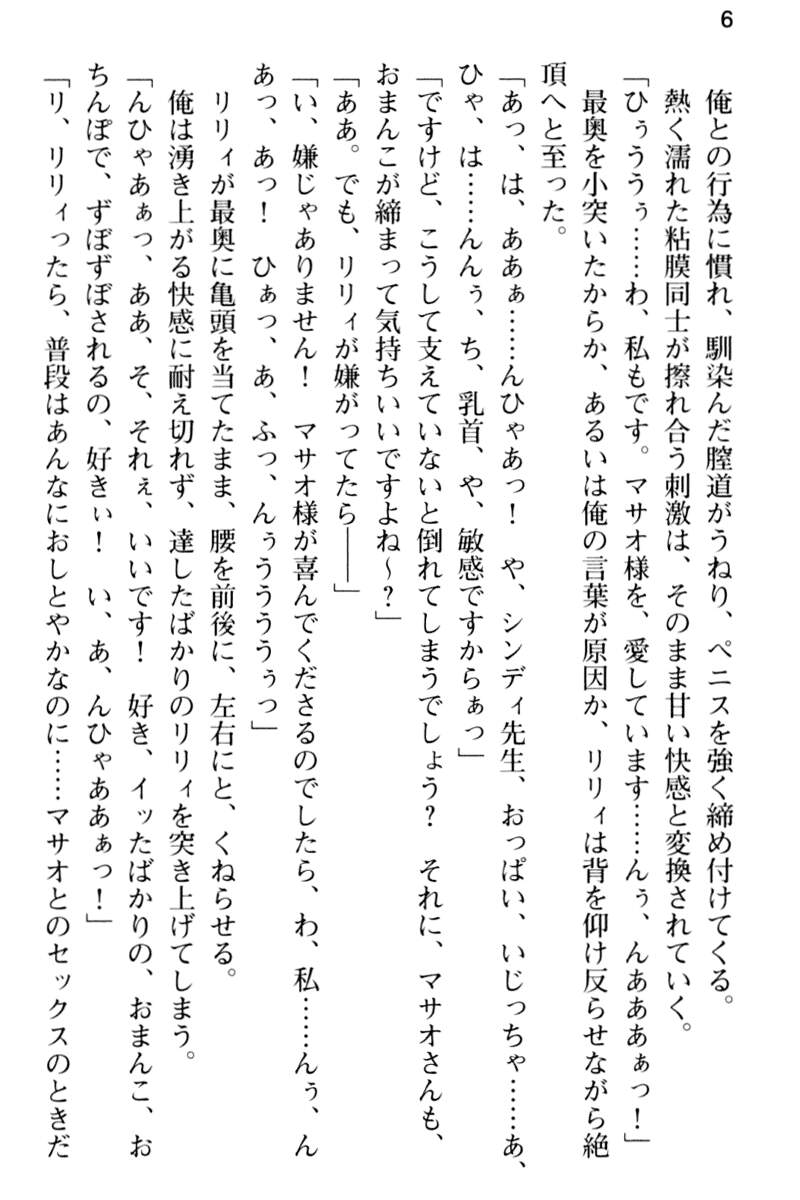 6
俺との行為に慣れ、馴染んだ膣道がうねり、ペニスを強く締め付けてくる。
熱く濡れた粘膜同士が擦れ合う刺激は、そのまま甘い快感と変換されていく。
「ひぅううぅ……わ、私もです。マサオ様を、愛しています……んぅ、んあああぁっ！」
最奥を小突いたからか、あるいは俺の言葉が原因か、リリィは背を仰け反らせながら絶
頂へと至った。
「あっ、は、ああぁ……んひゃあっ！　や、シンディ先生、おっぱい、いじっちゃ……あ、
ひゃ、は……んんぅ、ち、乳首、や、敏感ですからぁっ」
「ですけど、こうして支えていないと倒れてしまうでしょう？　それに、マサオさんも、
おまんこが締まって気持ちいいですよね～？」
「ああ。でも、リリィが嫌がってたら――」
「い、嫌じゃありません！　マサオ様が喜んでくださるのでしたら、わ、私……んぅ、ん
あっ、あっ！　ひぁっ、あ、ふっ、んぅうううぅっ」
リリィが最奥に亀頭を当てたまま、腰を前後に、左右にと、くねらせる。
俺は湧き上がる快感に耐え切れず、達したばかりのリリィを突き上げてしまう。
「んひゃあぁっ、ああ、そ、それぇ、いいです！　好き、イッたばかりの、おまんこ、お
ちんぽで、ずぼずぼされるの、好きぃ！　い、あ、んひゃああぁっ！」
「リ、リリィったら、普段はあんなにおしとやかなのに……マサオとのセックスのときだ